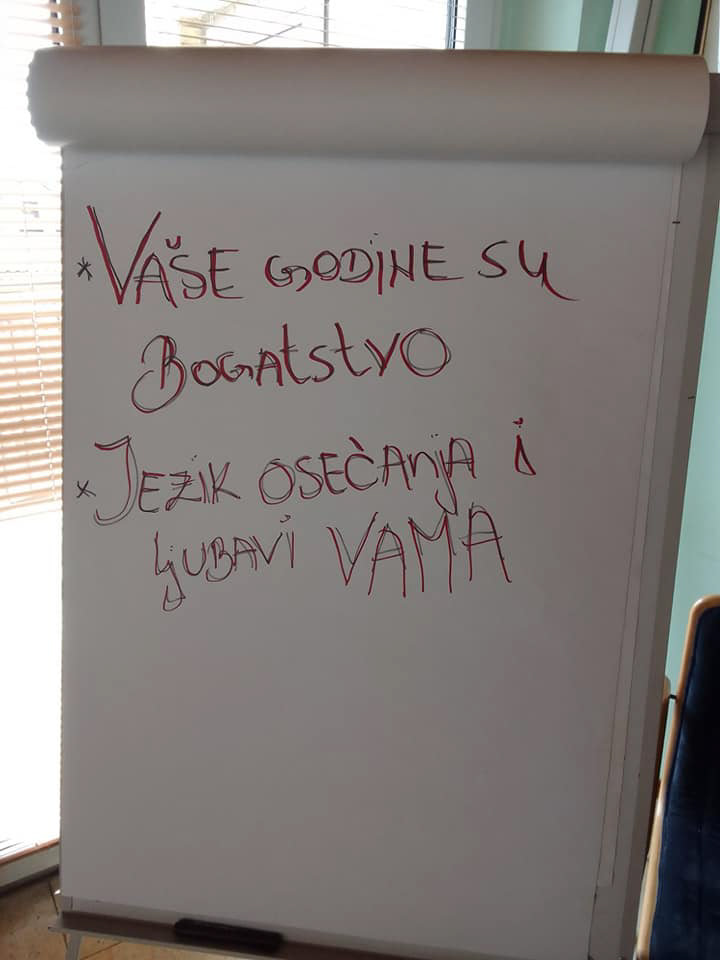 * VAŠE GODINE SU
BOGAtStVO
* JEZIK OSEČANjA i
ljUBAVi VAMA